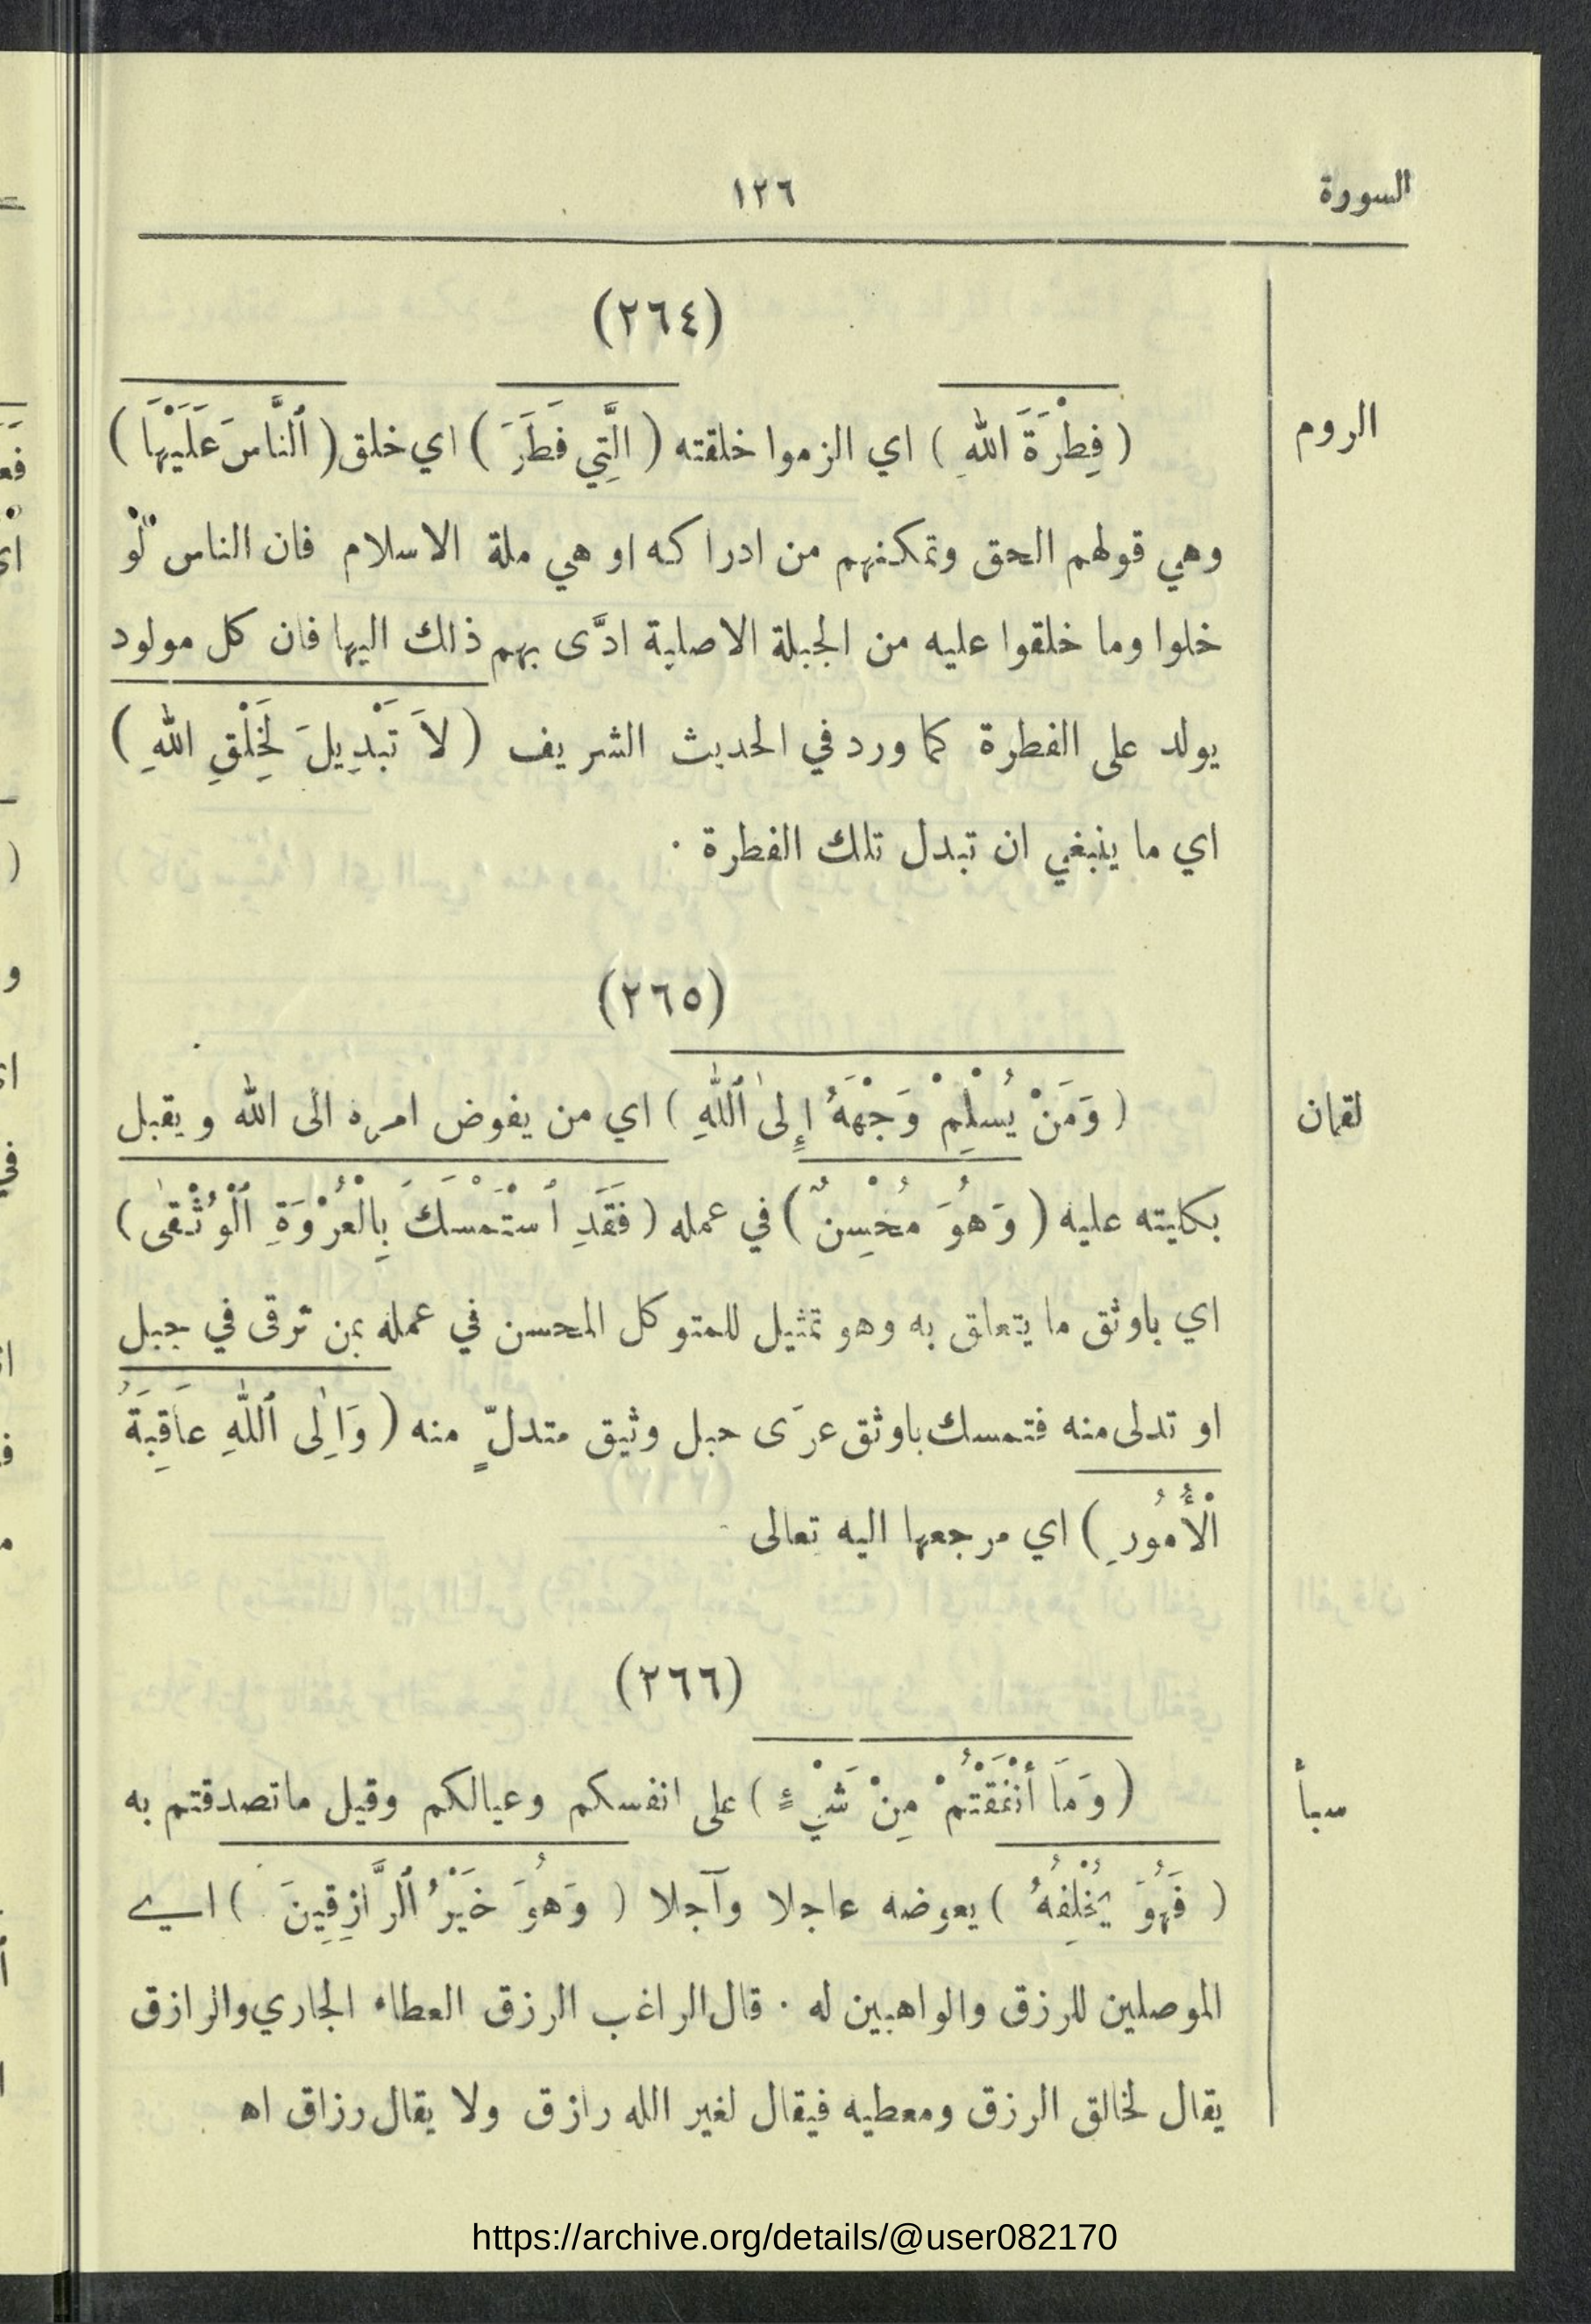 السورة
١٢٦
(٢٦٤)
الروم
( فِطْرَةَ اللهِ ) اي الزموا خلقته ( الَّتِي فَطَرَ ) اي خلق ( ٱلنَّاسَ عَلَيْهَا )
وهي قولهم الحق وتمكنهم من ادراكه او هي ملة الاسلام فان الناس لَوْ
خلوا وما خلقوا عليه من الجبلة الاصلية ادَّى بهم ذلك اليها فان كل مولود
يولد على الفطرة كما ورد في الحديث الشريف ( لاَ تَبْدِيلَ لِخَلْقِ اللهِ )
اي ما ينبغي ان تبدل تلك الفطرة ·
(٢٦٥)
لقمان
( وَمَنْ يُسْلِمْ وَجْهَهُ إِلىٰ ٱللهِ ) اي من يفوض امره الى الله ويقبل
بكليته عليه ( وَهُوَ مُحْسِنٌ ) في عمله ( فَقَدِ ٱسْتَمْسَكَ بِالْعُرْوَةِ ٱلْوُثْقىٰ )
اي باوثق ما يتعلق به وهو تمثيل للمتوكل المحسن في عمله بمن ترقى في جبل
او تدلى منه فتمسك باوثق عرَى حبل وثيق متدلٍّ منه ( وَاِلٰى ٱللهِ عاَقِبَةُ
الْأُمُورِ ) اي مرجعها اليه تعالى
(٢٦٦)
سبأ
( وَمَا أَنْفَقْتُمْ مِنْ شَيْءٍ ) على انفسكم وعيالكم وقيل ماتصدقتم به
( فَهُوَ يُخْلِفهُ ) يعوضه عاجلا وآجلا ( وَهُوَ خَيْرُ ٱلرَّازِقِينَ ) اي
الموصلين للرزق والواهبين له · قال الراغب الرزق العطاء الجاري والرازق
يقال لخالق الرزق ومعطيه فيقال لغير الله رازق ولا يقال رزاق اه
https://archive.org/details/@user082170